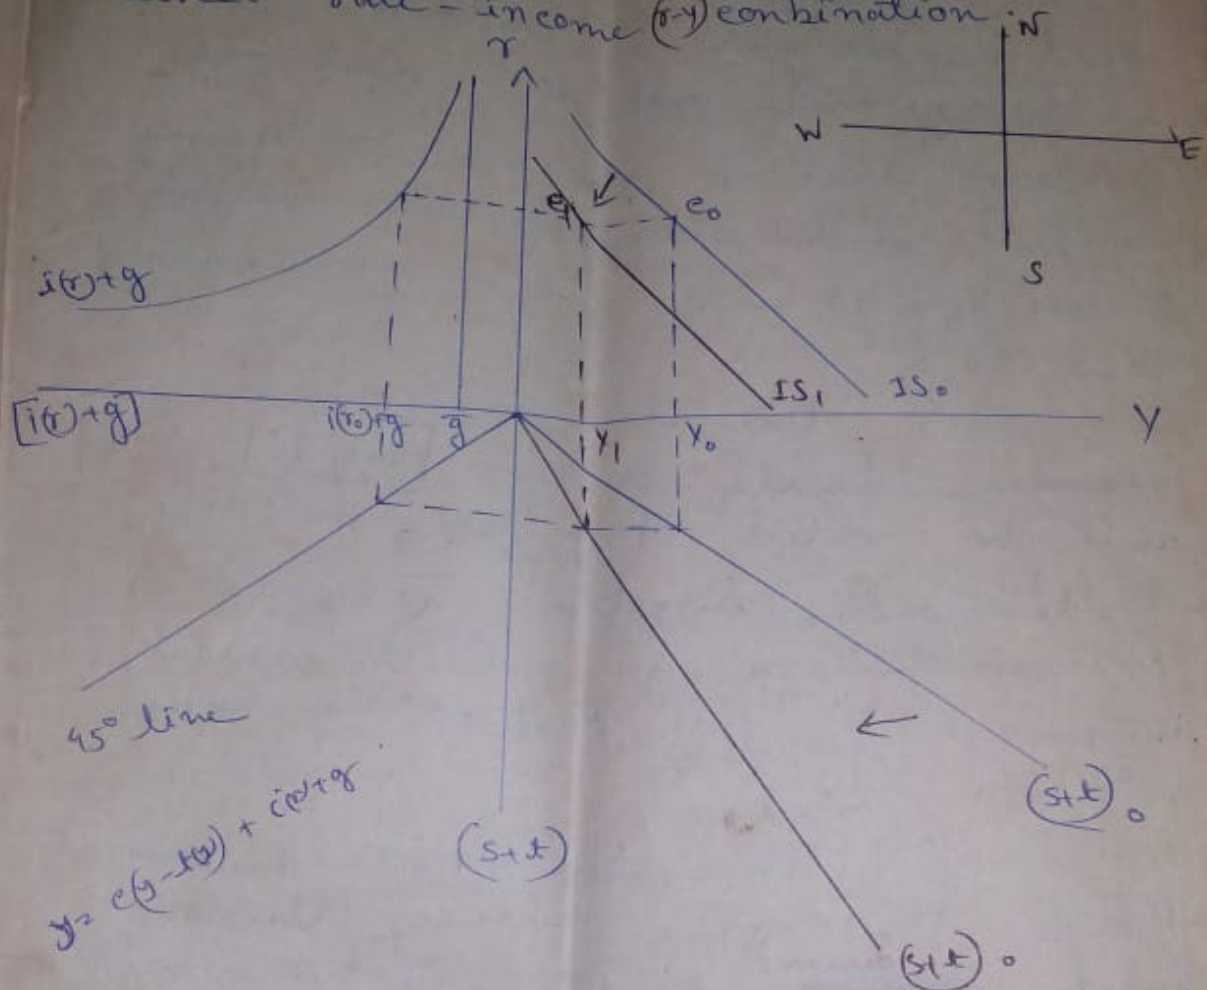 rate - income (r-y) combination
N
r
W
E
e₁
e₀
S
i(r)+g
IS₁
IS₀
[i(r)+g]
i(r₀)+g
g̅
Y₁
Y₀
Y
45° line
(s+t)₀
y = c(y-t(y)) + i(r)+g
(s+t)
(s+t)₀